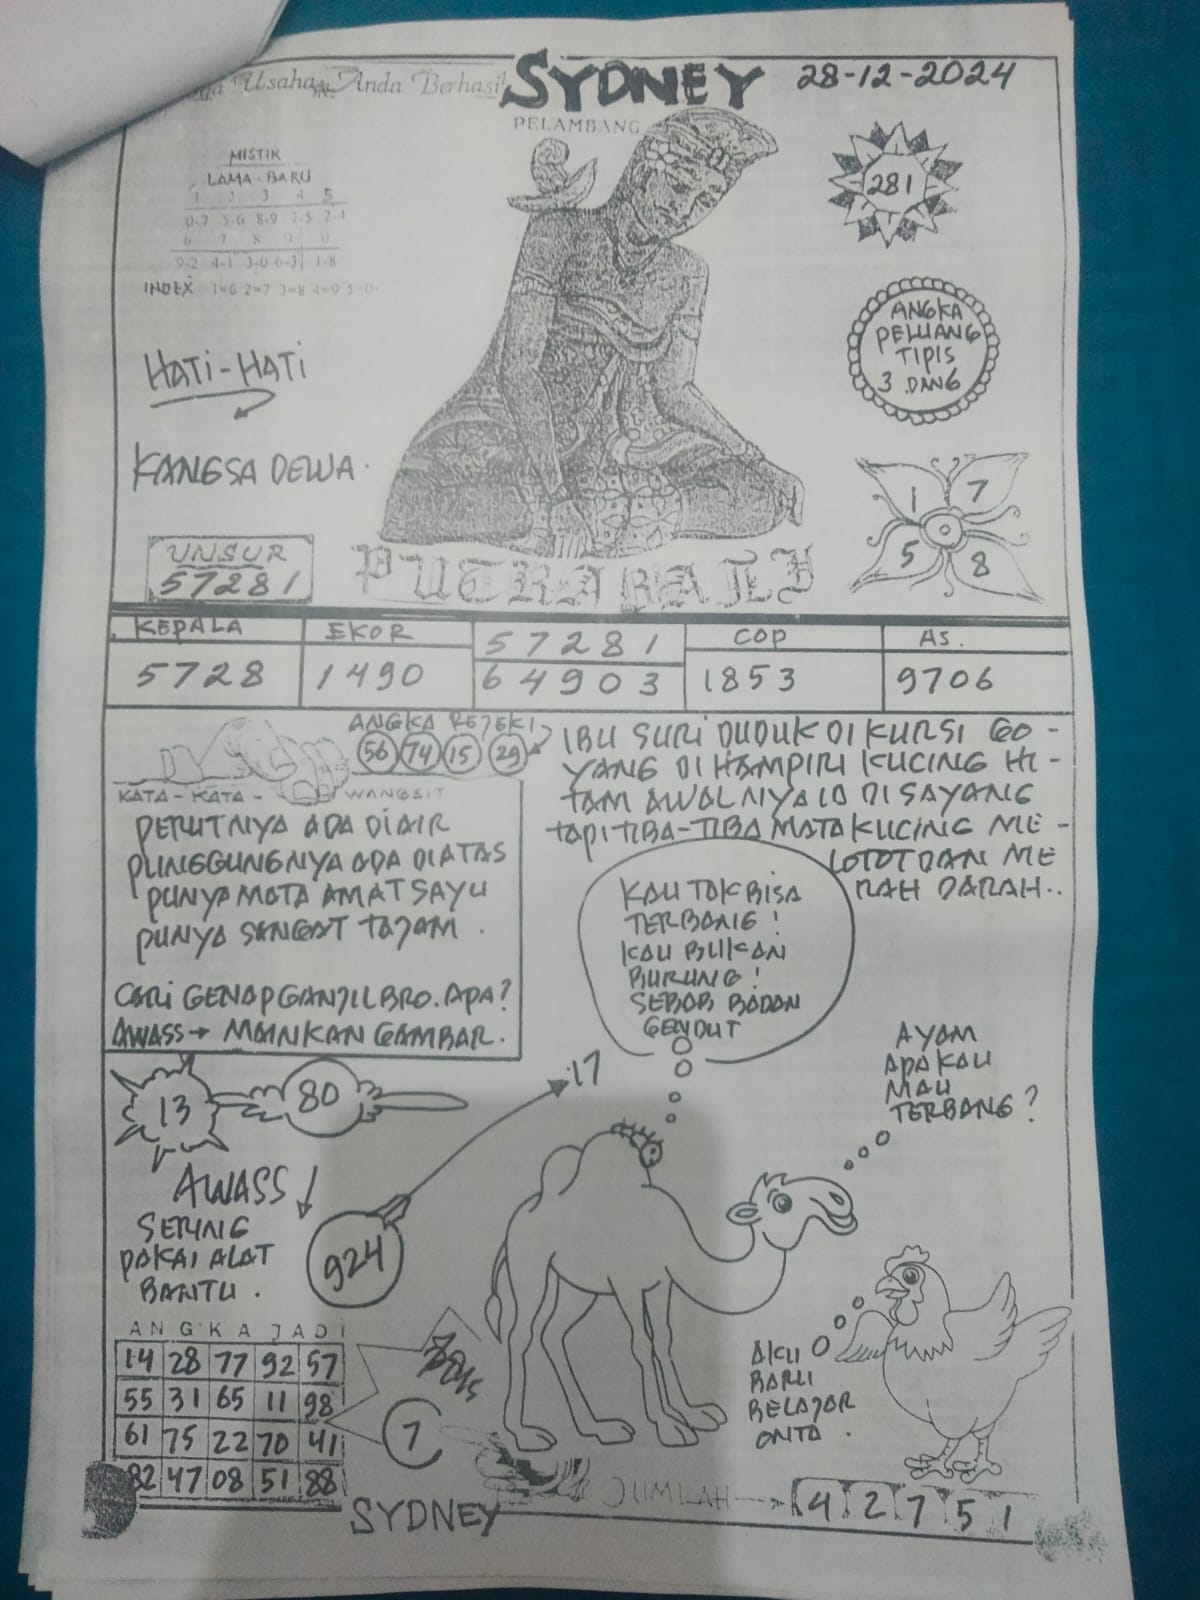 Usaha Anda Berhasil
SYDNEY
28-12-2024
PELAMBANG
MISTIK
LAMA - BARU
1 2 3 4 5
0-7 5-6 8-9 7-5 2-4
6 7 8 9 0
9-2 4-1 3-0 6-3 1-8
INDEX 1=6 2=7 3=8 4=9 5=0
281
ANGKA
PELUANG
TIPIS
3 DANG
HATI-HATI
KANGSA DEWA.
1 7
5 8
UNSUR
57281
PUTRA BALI
KEPALA EKOR 57281 COP AS.
5728 1490 64903 1853 9706
ANGKA REJEKI
56 74 15 29
KATA - KATA - WANGSIT
PERUTNYA ADA DIAIR
PUNGGUNGNYA ADA DIATAS
PUNYA MATA AMAT SAYU
PUNYA SANGAT TAJAM .
CARI GENAP GANJIL BRO. APA?
AWASS → MAINKAN GAMBAR.
IBU SURI DUDUK DI KURSI GO-
YANG DI HAMPIRI KUCING HI-
TAM AWALNYA IA DI SAYANG
TAPI TIBA-TIBA MATA KUCING ME-
LOTOT DAN ME
RAH DARAH..
KAU TAK BISA
TERBANG!
KAU BUKAN
BURUNG!
SEBAB BADAN
GENDUT
AYAM
APA KAU
MAU
TERBANG?
13
80
17
AWASS
SERING
PAKAI ALAT
BANTU.
924
ANGKA JADI
14 28 77 92 57
55 31 65 11 98
61 75 22 70 41
82 47 08 51 88
7
AKU
BARU
BELAJAR
ONTA.
SYDNEY
JUMLAH → 4 2 7 5 1